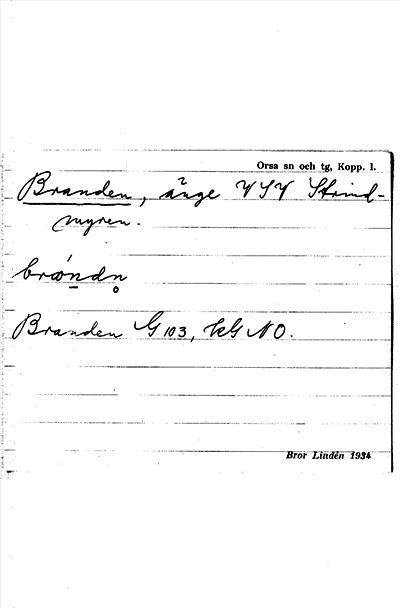 Orsa sn och tg, Kopp. l.
Branden, änge VSV Strind-
myren.
bròndn̥
Branden G 103, kG NO.
Bror Lindén 1934